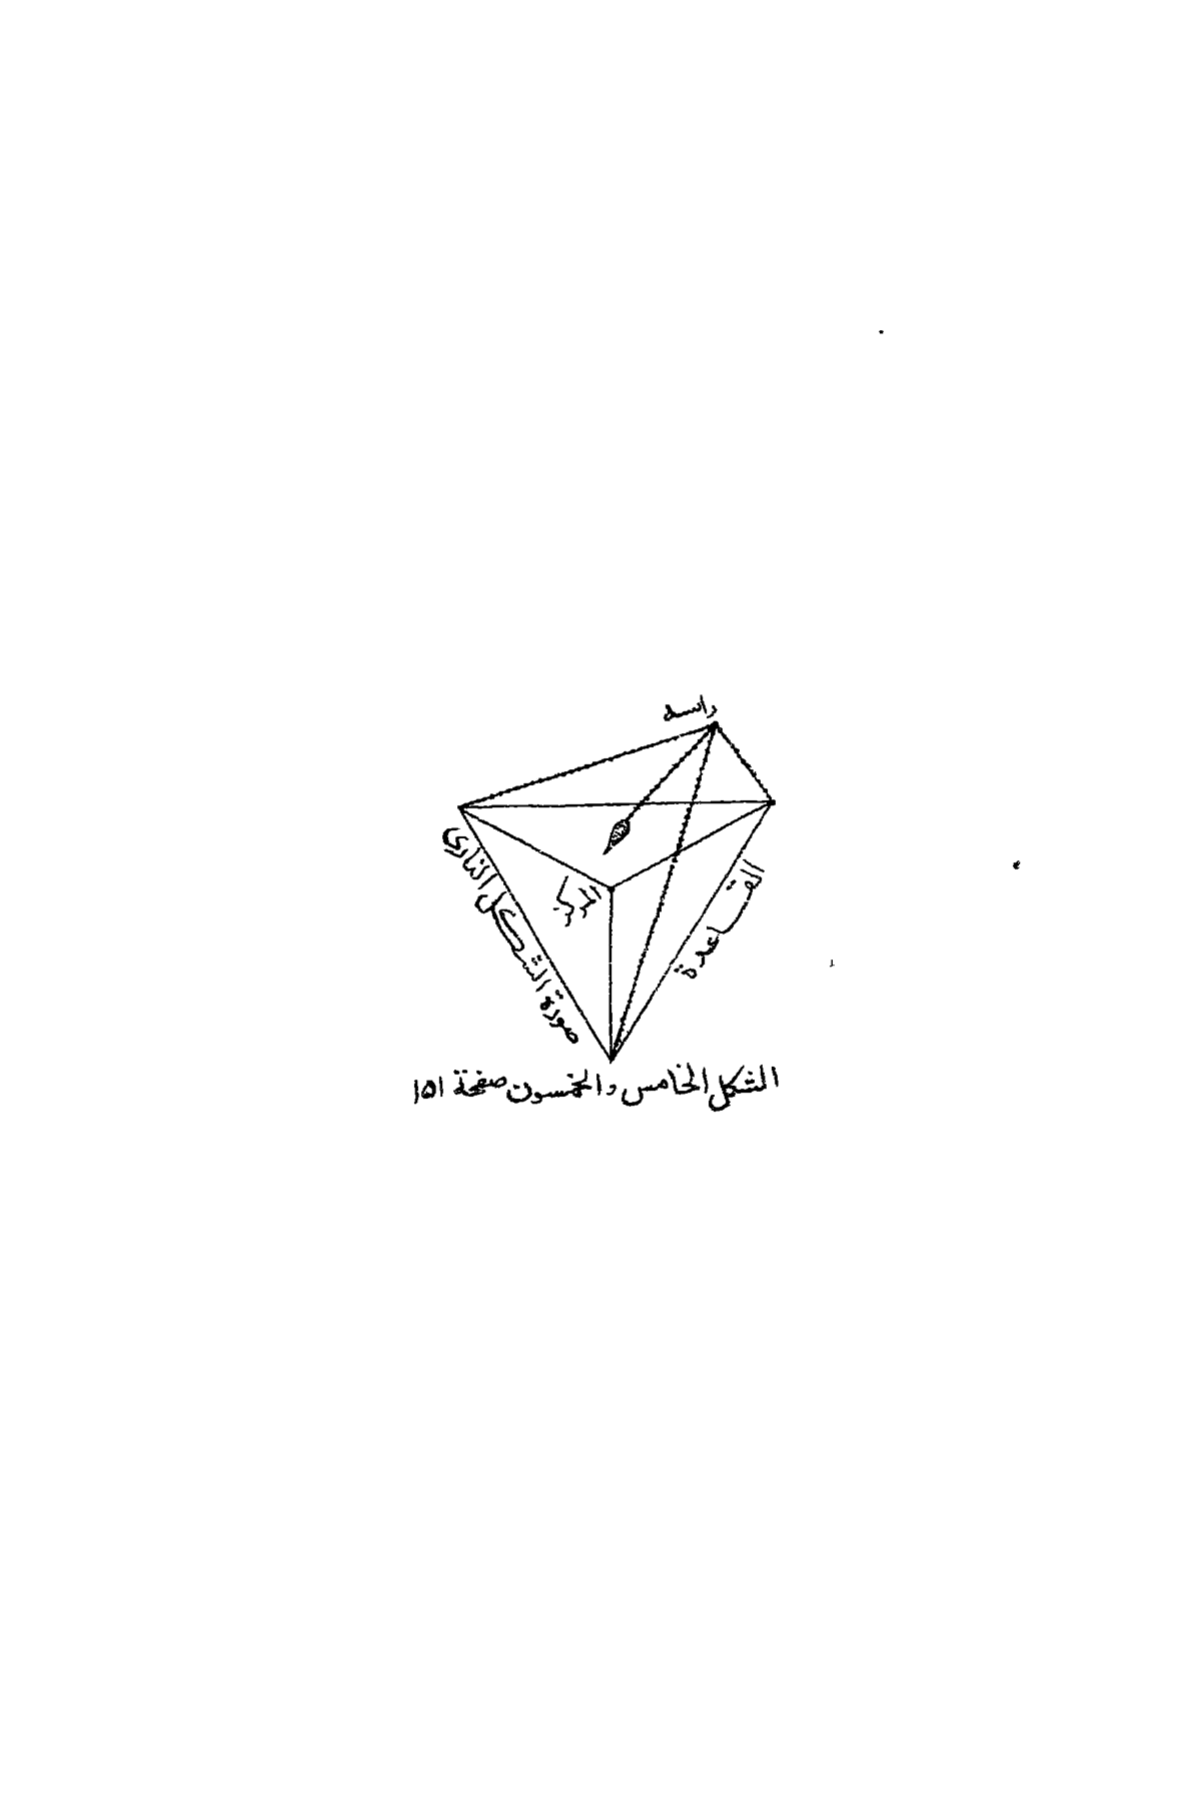 راسه
صورة الشكل الناري
المركز
القاعدة
الشكل الخامس والخمسون صفحة ١٥١